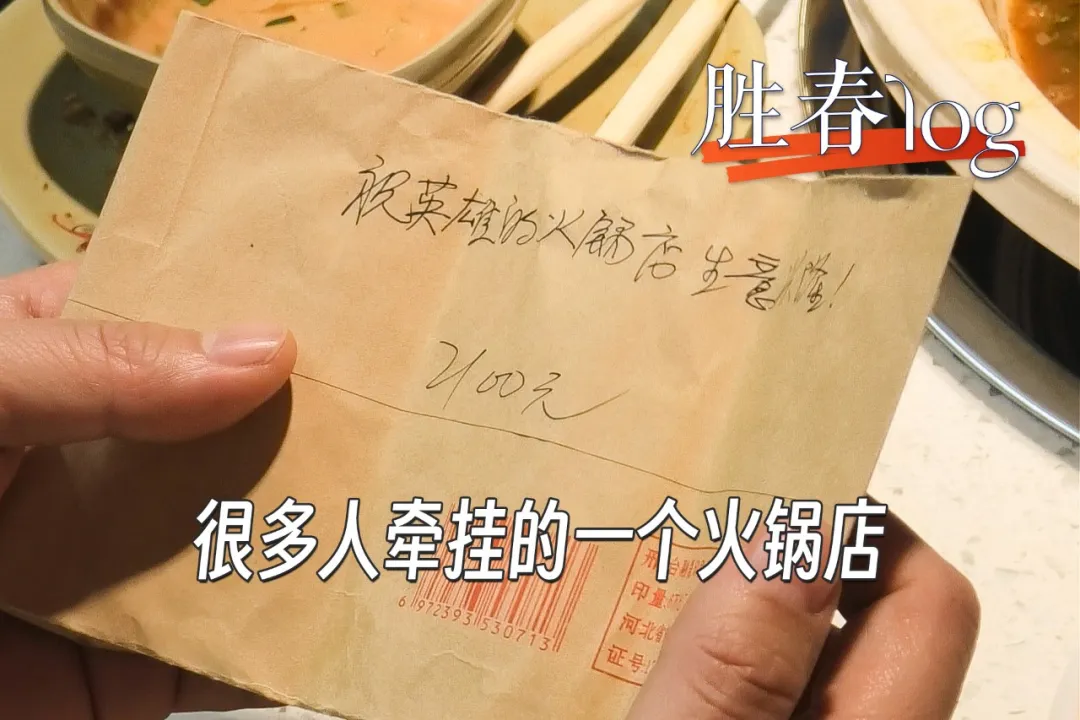 胜春log
祝英雄的火锅店生意隆!
2100元
很多人牵挂的一个火锅店
6 972393 530713
印量
河北
证号